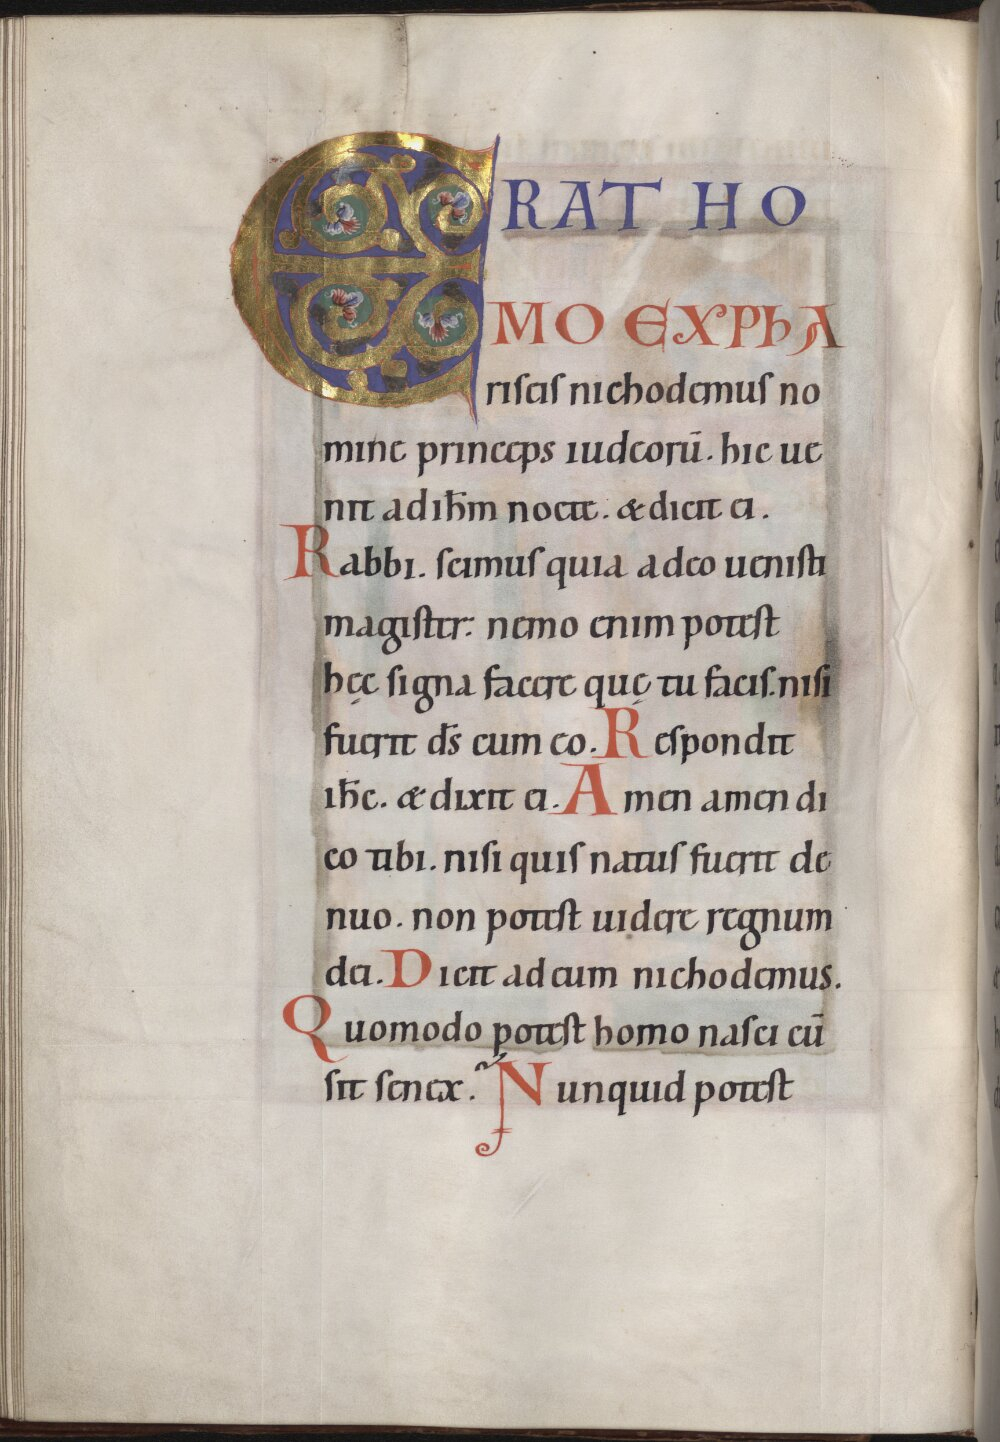 ERAT HO
MO EXPhA
riseis nichodemus no
mine princeps iudeorū. hic ue
nit ad ihm̄ nocte. & dicit ei.
Rabbi. scimus quia a deo uenisti
magister: nemo enim potest
hęc signa facere quę tu facis. nisi
fuerit d̄s cum eo. Respondit
ih̄c. & dixit ei. Amen amen di
co tibi. nisi quis natus fuerit de
nuo. non potest uidere regnum
dei. Dicit ad eum nichodemus.
Quomodo potest homo nasci cū
sit senex. Nunquid potest